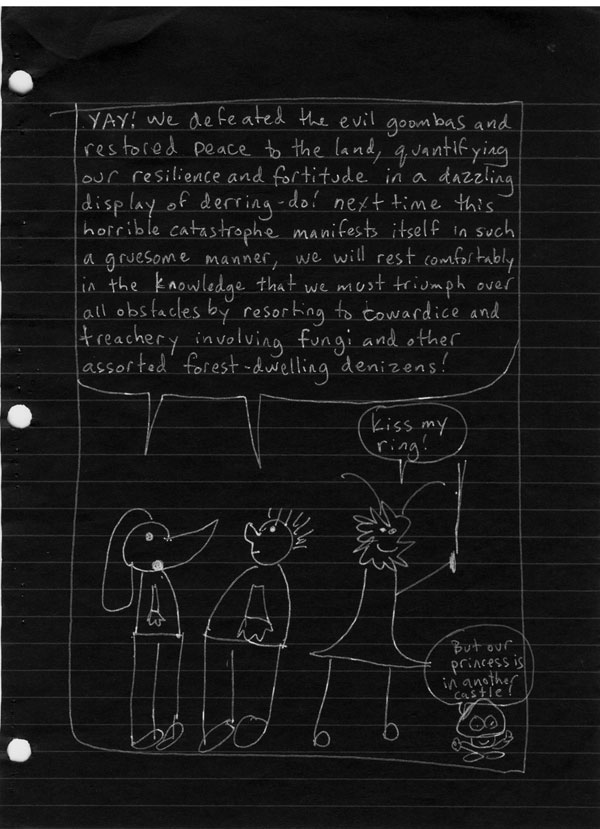 YAY! We defeated the evil goombas and
restored peace to the land, quantifying
our resilience and fortitude in a dazzling
display of derring-do! next time this
horrible catastrophe manifests itself in such
a gruesome manner, we will rest comfortably
in the knowledge that we must triumph over
all obstacles by resorting to cowardice and
treachery involving fungi and other
assorted forest-dwelling denizens!
Kiss my
ring!
But our
princess is
in another
castle!